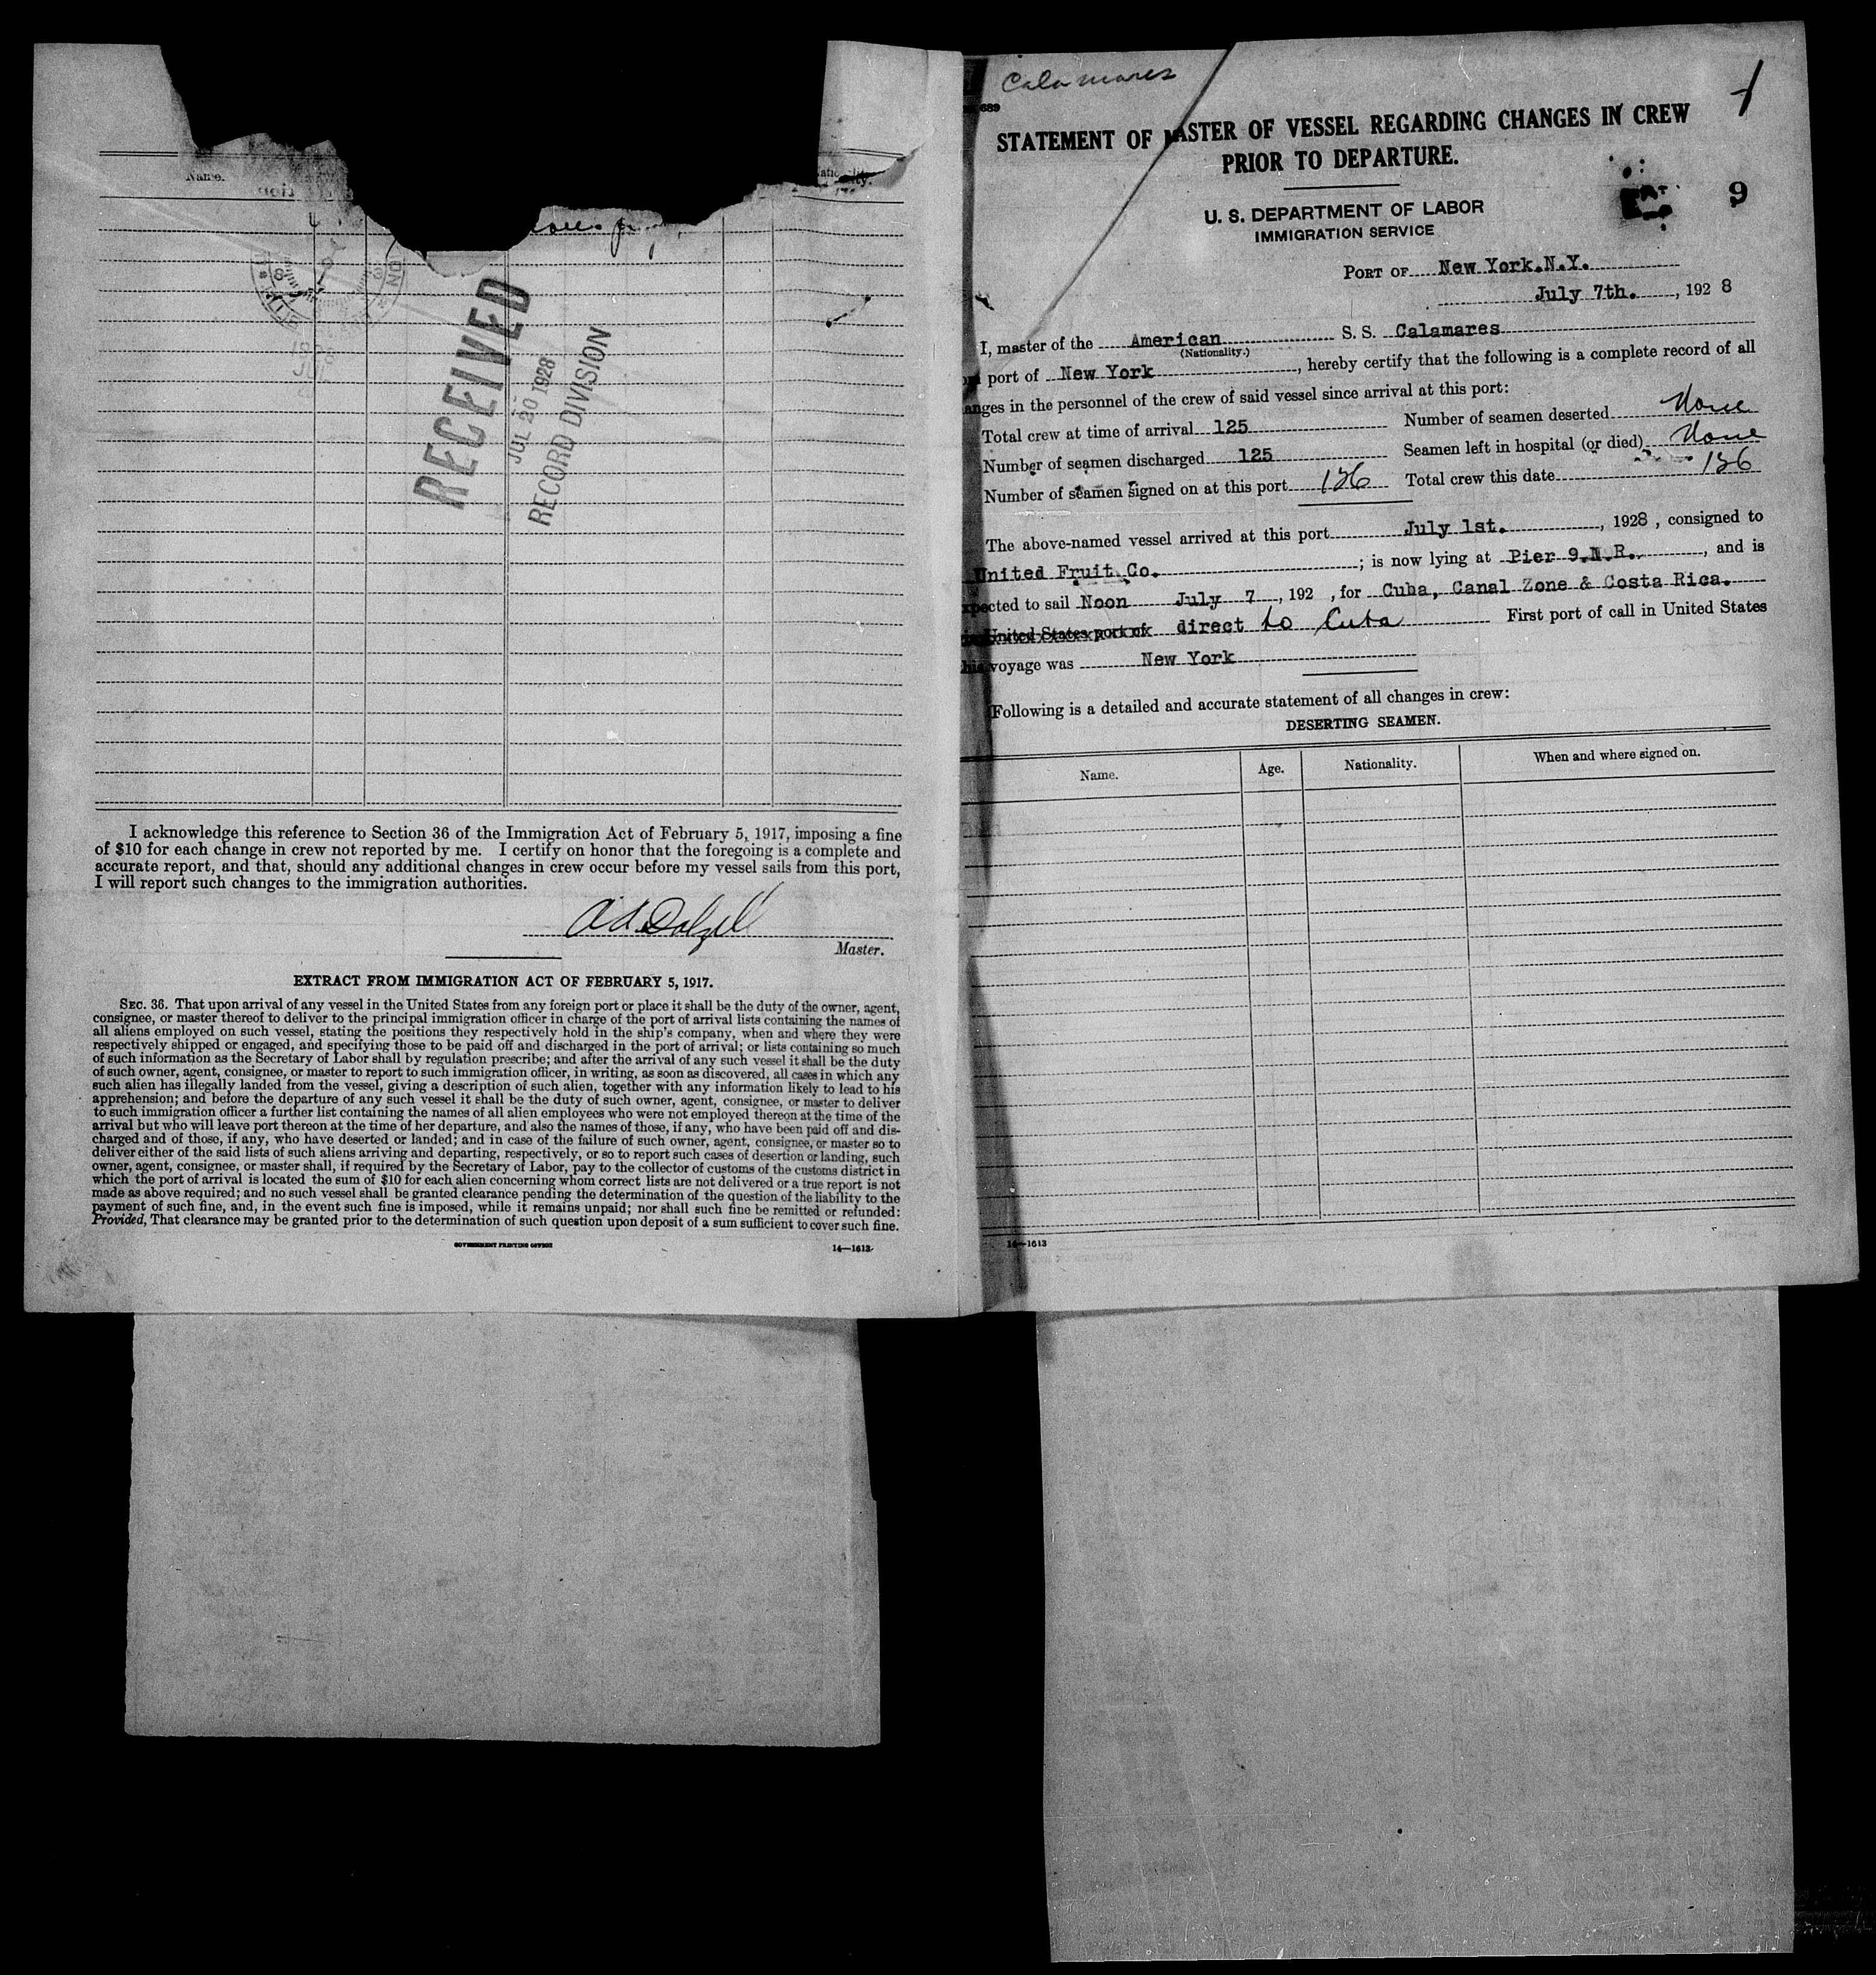 Name.
RECEIVED
JUL 20 1928
RECORD DIVISION
I acknowledge this reference to Section 36 of the Immigration Act of February 5, 1917, imposing a fine
of $10 for each change in crew not reported by me. I certify on honor that the foregoing is a complete and
accurate report, and that, should any additional changes in crew occur before my vessel sails from this port,
I will report such changes to the immigration authorities.
Master.
EXTRACT FROM IMMIGRATION ACT OF FEBRUARY 5, 1917.
SEC. 36. That upon arrival of any vessel in the United States from any foreign port or place it shall be the duty of the owner, agent,
consignee, or master thereof to deliver to the principal immigration officer in charge of the port of arrival lists containing the names of
all aliens employed on such vessel, stating the positions they respectively hold in the ship's company, when and where they were
respectively shipped or engaged, and specifying those to be paid off and discharged in the port of arrival; or lists containing so much
of such information as the Secretary of Labor shall by regulation prescribe; and after the arrival of any such vessel it shall be the duty
of such owner, agent, consignee, or master to report to such immigration officer, in writing, as soon as discovered, all cases in which any
such alien has illegally landed from the vessel, giving a description of such alien, together with any information likely to lead to his
apprehension; and before the departure of any such vessel it shall be the duty of such owner, agent, consignee, or master to deliver
to such immigration officer a further list containing the names of all alien employees who were not employed thereon at the time of the
arrival but who will leave port thereon at the time of her departure, and also the names of those, if any, who have been paid off and dis-
charged and of those, if any, who have deserted or landed; and in case of the failure of such owner, agent, consignee, or master so to
deliver either of the said lists of such aliens arriving and departing, respectively, or so to report such cases of desertion or landing, such
owner, agent, consignee, or master shall, if required by the Secretary of Labor, pay to the collector of customs of the customs district in
which the port of arrival is located the sum of $10 for each alien concerning whom correct lists are not delivered or a true report is not
made as above required; and no such vessel shall be granted clearance pending the determination of the question of the liability to the
payment of such fine, and, in the event such fine is imposed, while it remains unpaid; nor shall such fine be remitted or refunded:
Provided, That clearance may be granted prior to the determination of such question upon deposit of a sum sufficient to cover such fine.
GOVERNMENT PRINTING OFFICE 14—1613
Calamares
689
STATEMENT OF MASTER OF VESSEL REGARDING CHANGES IN CREW
PRIOR TO DEPARTURE.
9
U. S. DEPARTMENT OF LABOR
IMMIGRATION SERVICE
PORT OF New York.N.Y.
July 7th. , 192 8
I, master of the American S. S. Calamares
(Nationality.)
port of New York , hereby certify that the following is a complete record of all
anges in the personnel of the crew of said vessel since arrival at this port:
Total crew at time of arrival 125 Number of seamen deserted None
Number of seamen discharged 125 Seamen left in hospital (or died) None
Number of seamen signed on at this port 126 Total crew this date 126
The above-named vessel arrived at this port July 1st. , 1928 , consigned to
United Fruit Co. ; is now lying at Pier 9.N.R. , and is
pected to sail Noon July 7 , 192 , for Cuba, Canal Zone & Costa Rica.
United States port of direct to Cuba First port of call in United States
voyage was New York
Following is a detailed and accurate statement of all changes in crew:
DESERTING SEAMEN.
Name. Age. Nationality. When and where signed on.
14—1613